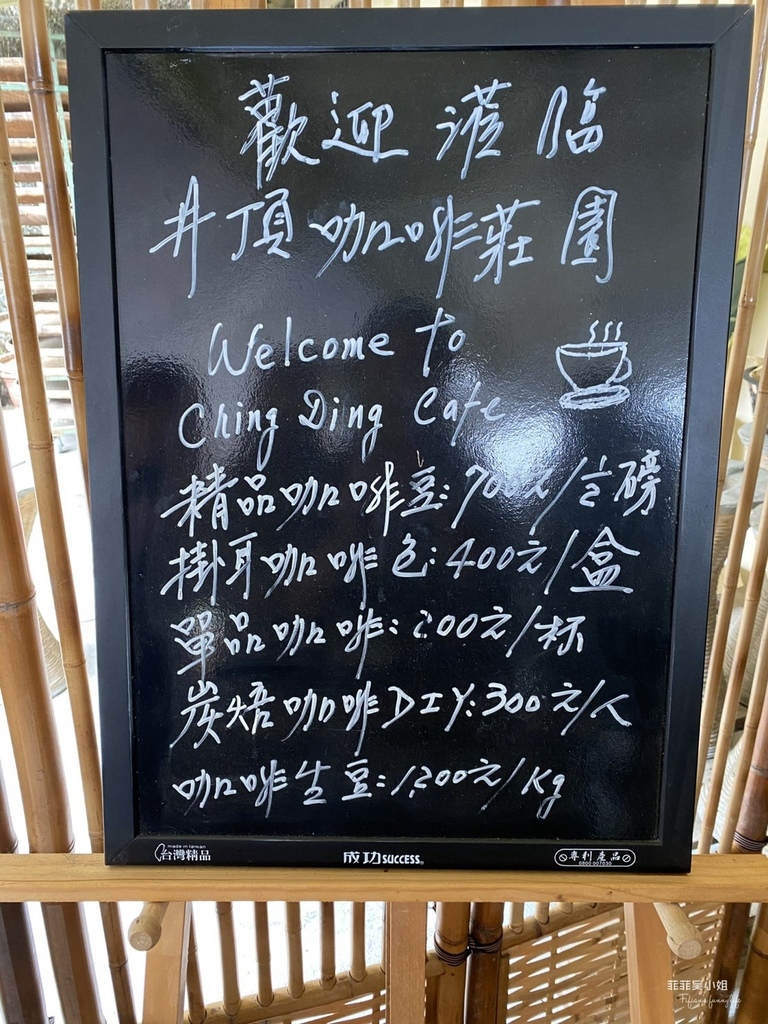 歡迎蒞臨
井頂咖啡莊園
Welcome to
Ching Ding Cafe
精品咖啡豆:700元/磅
掛耳咖啡包:400元/盒
單品咖啡:200元/杯
炭焙咖啡DIY:300元/人
咖啡生豆:1,200元/Kg
made in taiwan
台灣精品
成功SUCCESS®
專利產品
0800-007030
菲菲吳小姐